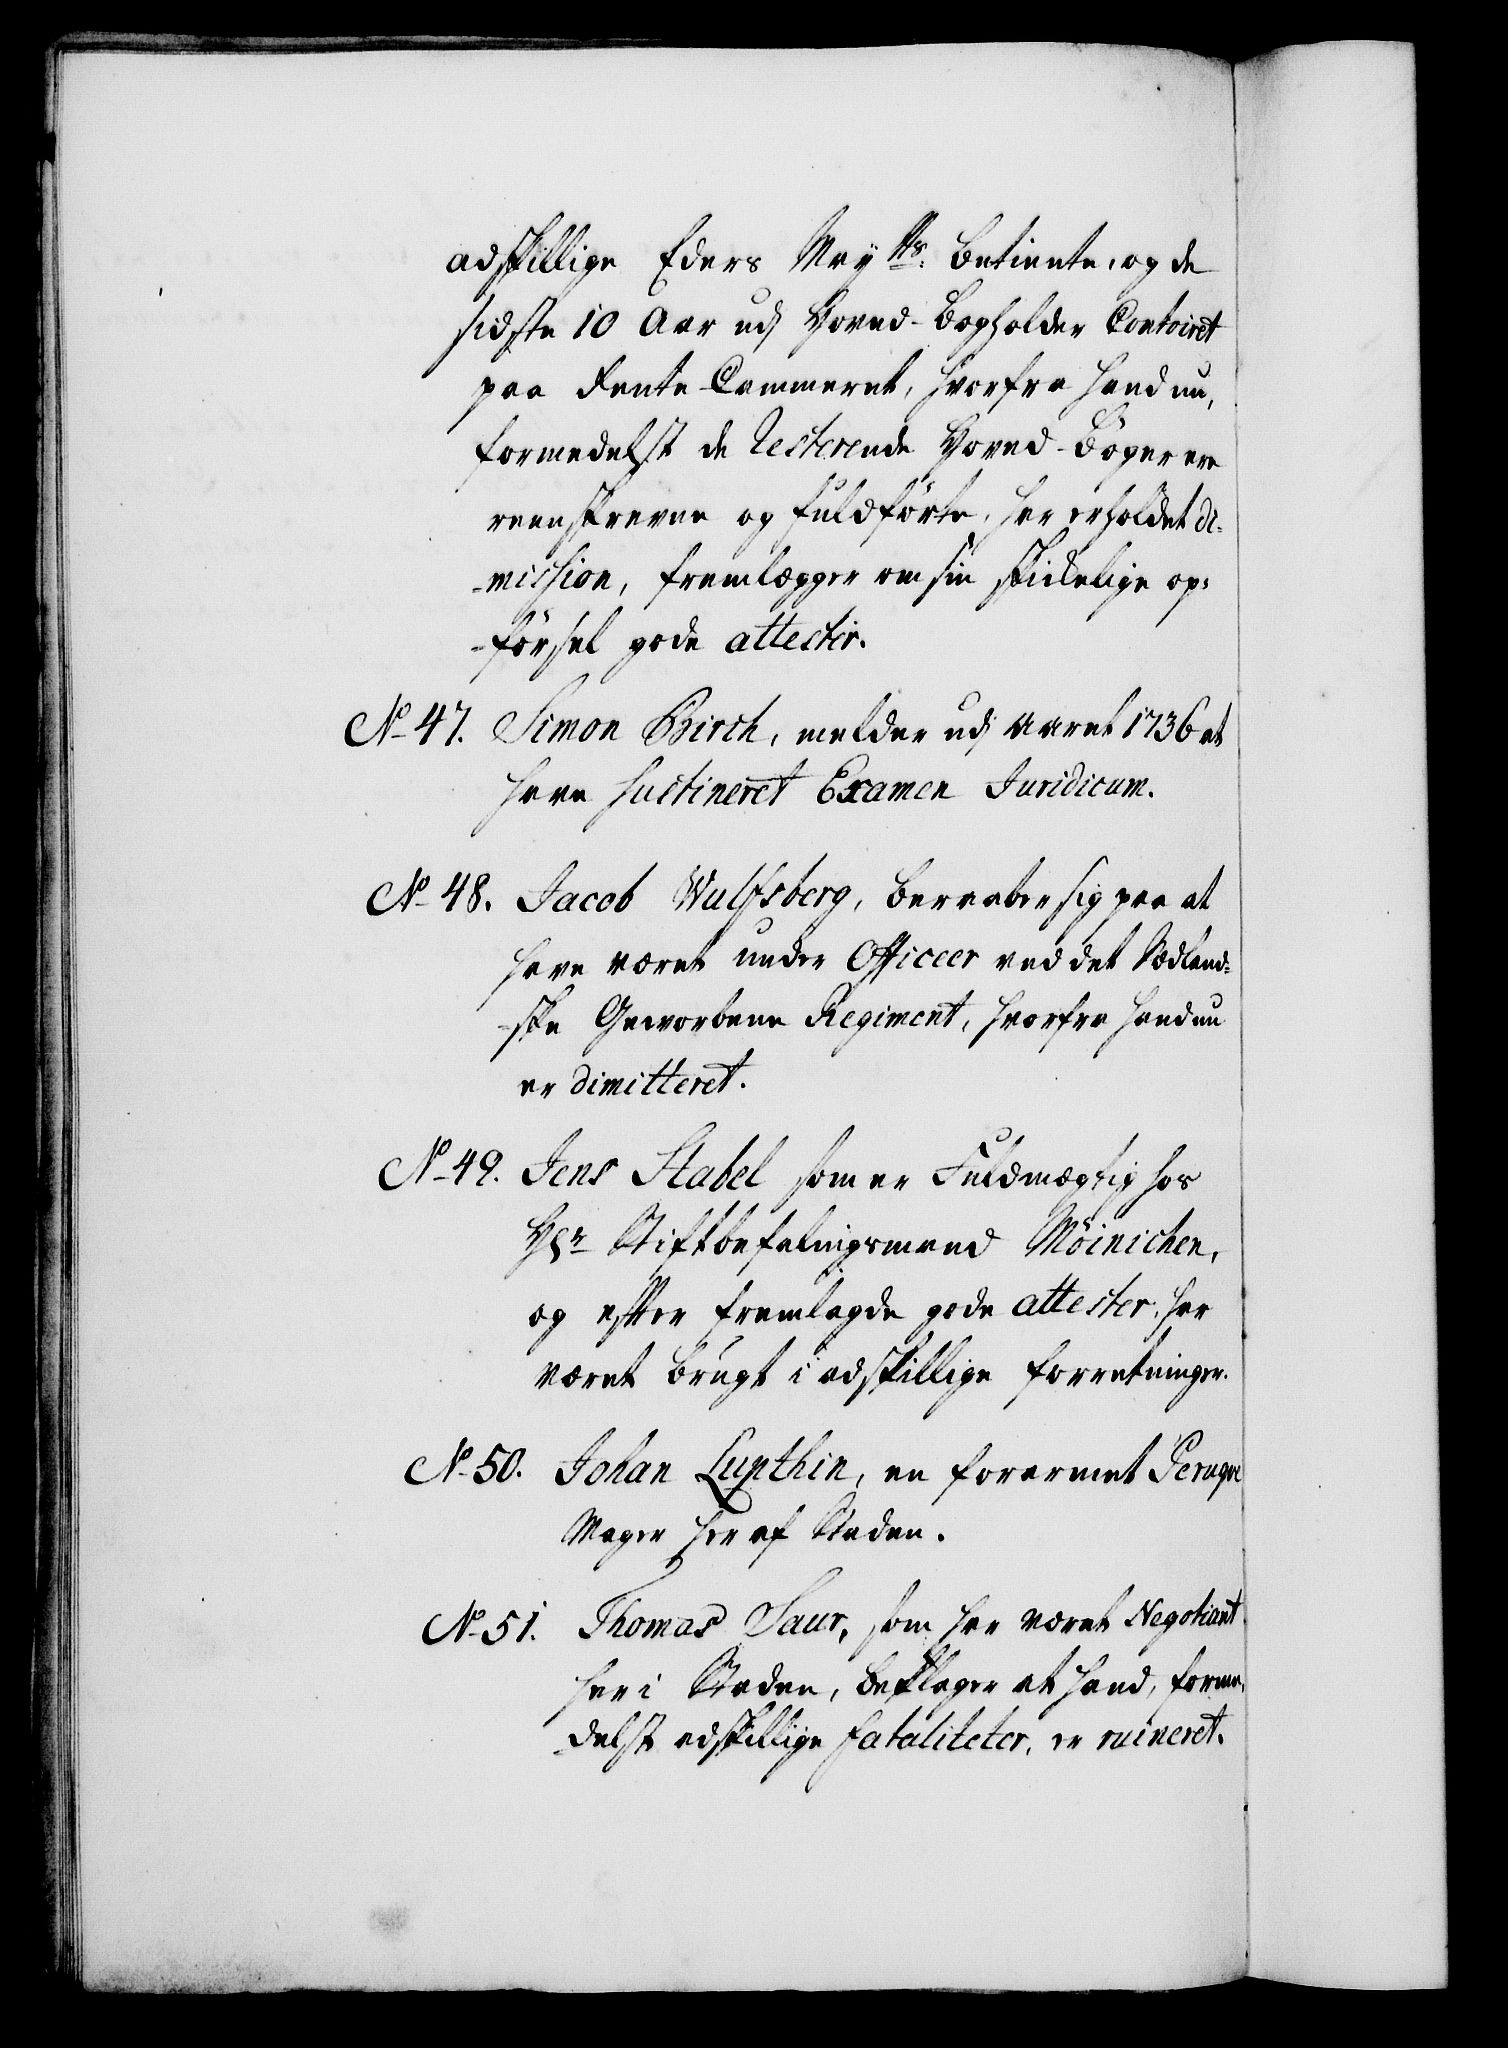 adskillige Eders May<sup>tts</sup>: Betiente, og de
sidste 10 Aar udj Hoved-Bogholder Contoiret
paa Rente-Cammeret, hvorfra hand nu,
formedelst de Resterende Hoved-Böger ere
reenskrevne og fuldförte, har erholdet di-
-mission, fremlægger om sin skickelige op-
-försel gode attester.
No 47. Simon Birch, melder udj Aaret 1736 at
have sustineret Examen Juridicum.
No 48. Jacob Wulfsberg, beraaber sig paa at
have været under Officeer ved det
-ske Geworbene Regiment, hvorfra hand nu
er dimitteret.
No 49. Jens Stabel som er Fuldmægtig hos
Hr Stiftbefalingsmand Möinichen,
og efter fremlagde gode attester, har
været brugt i adskillige forretninger.
No 50. Johan Lupthin, en forarmet Peruqve
Mager her af Staden.
No 51. Thomas Saur, som har været Negotiant
her i Staden, beklager at hand, forme-
-delst adskillige fataliteter, er ruineret.